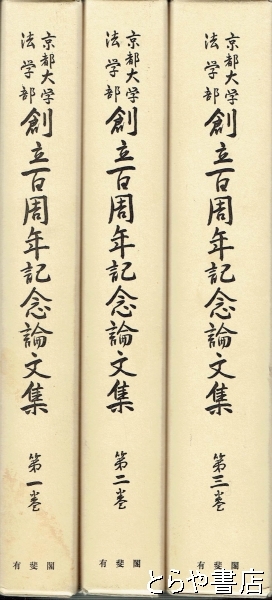 京都大学
法学部
創立百周年記念論文集
第一巻
有斐閣
京都大学
法学部
創立百周年記念論文集
第二巻
有斐閣
京都大学
法学部
創立百周年記念論文集
第三巻
有斐閣
とらや書店